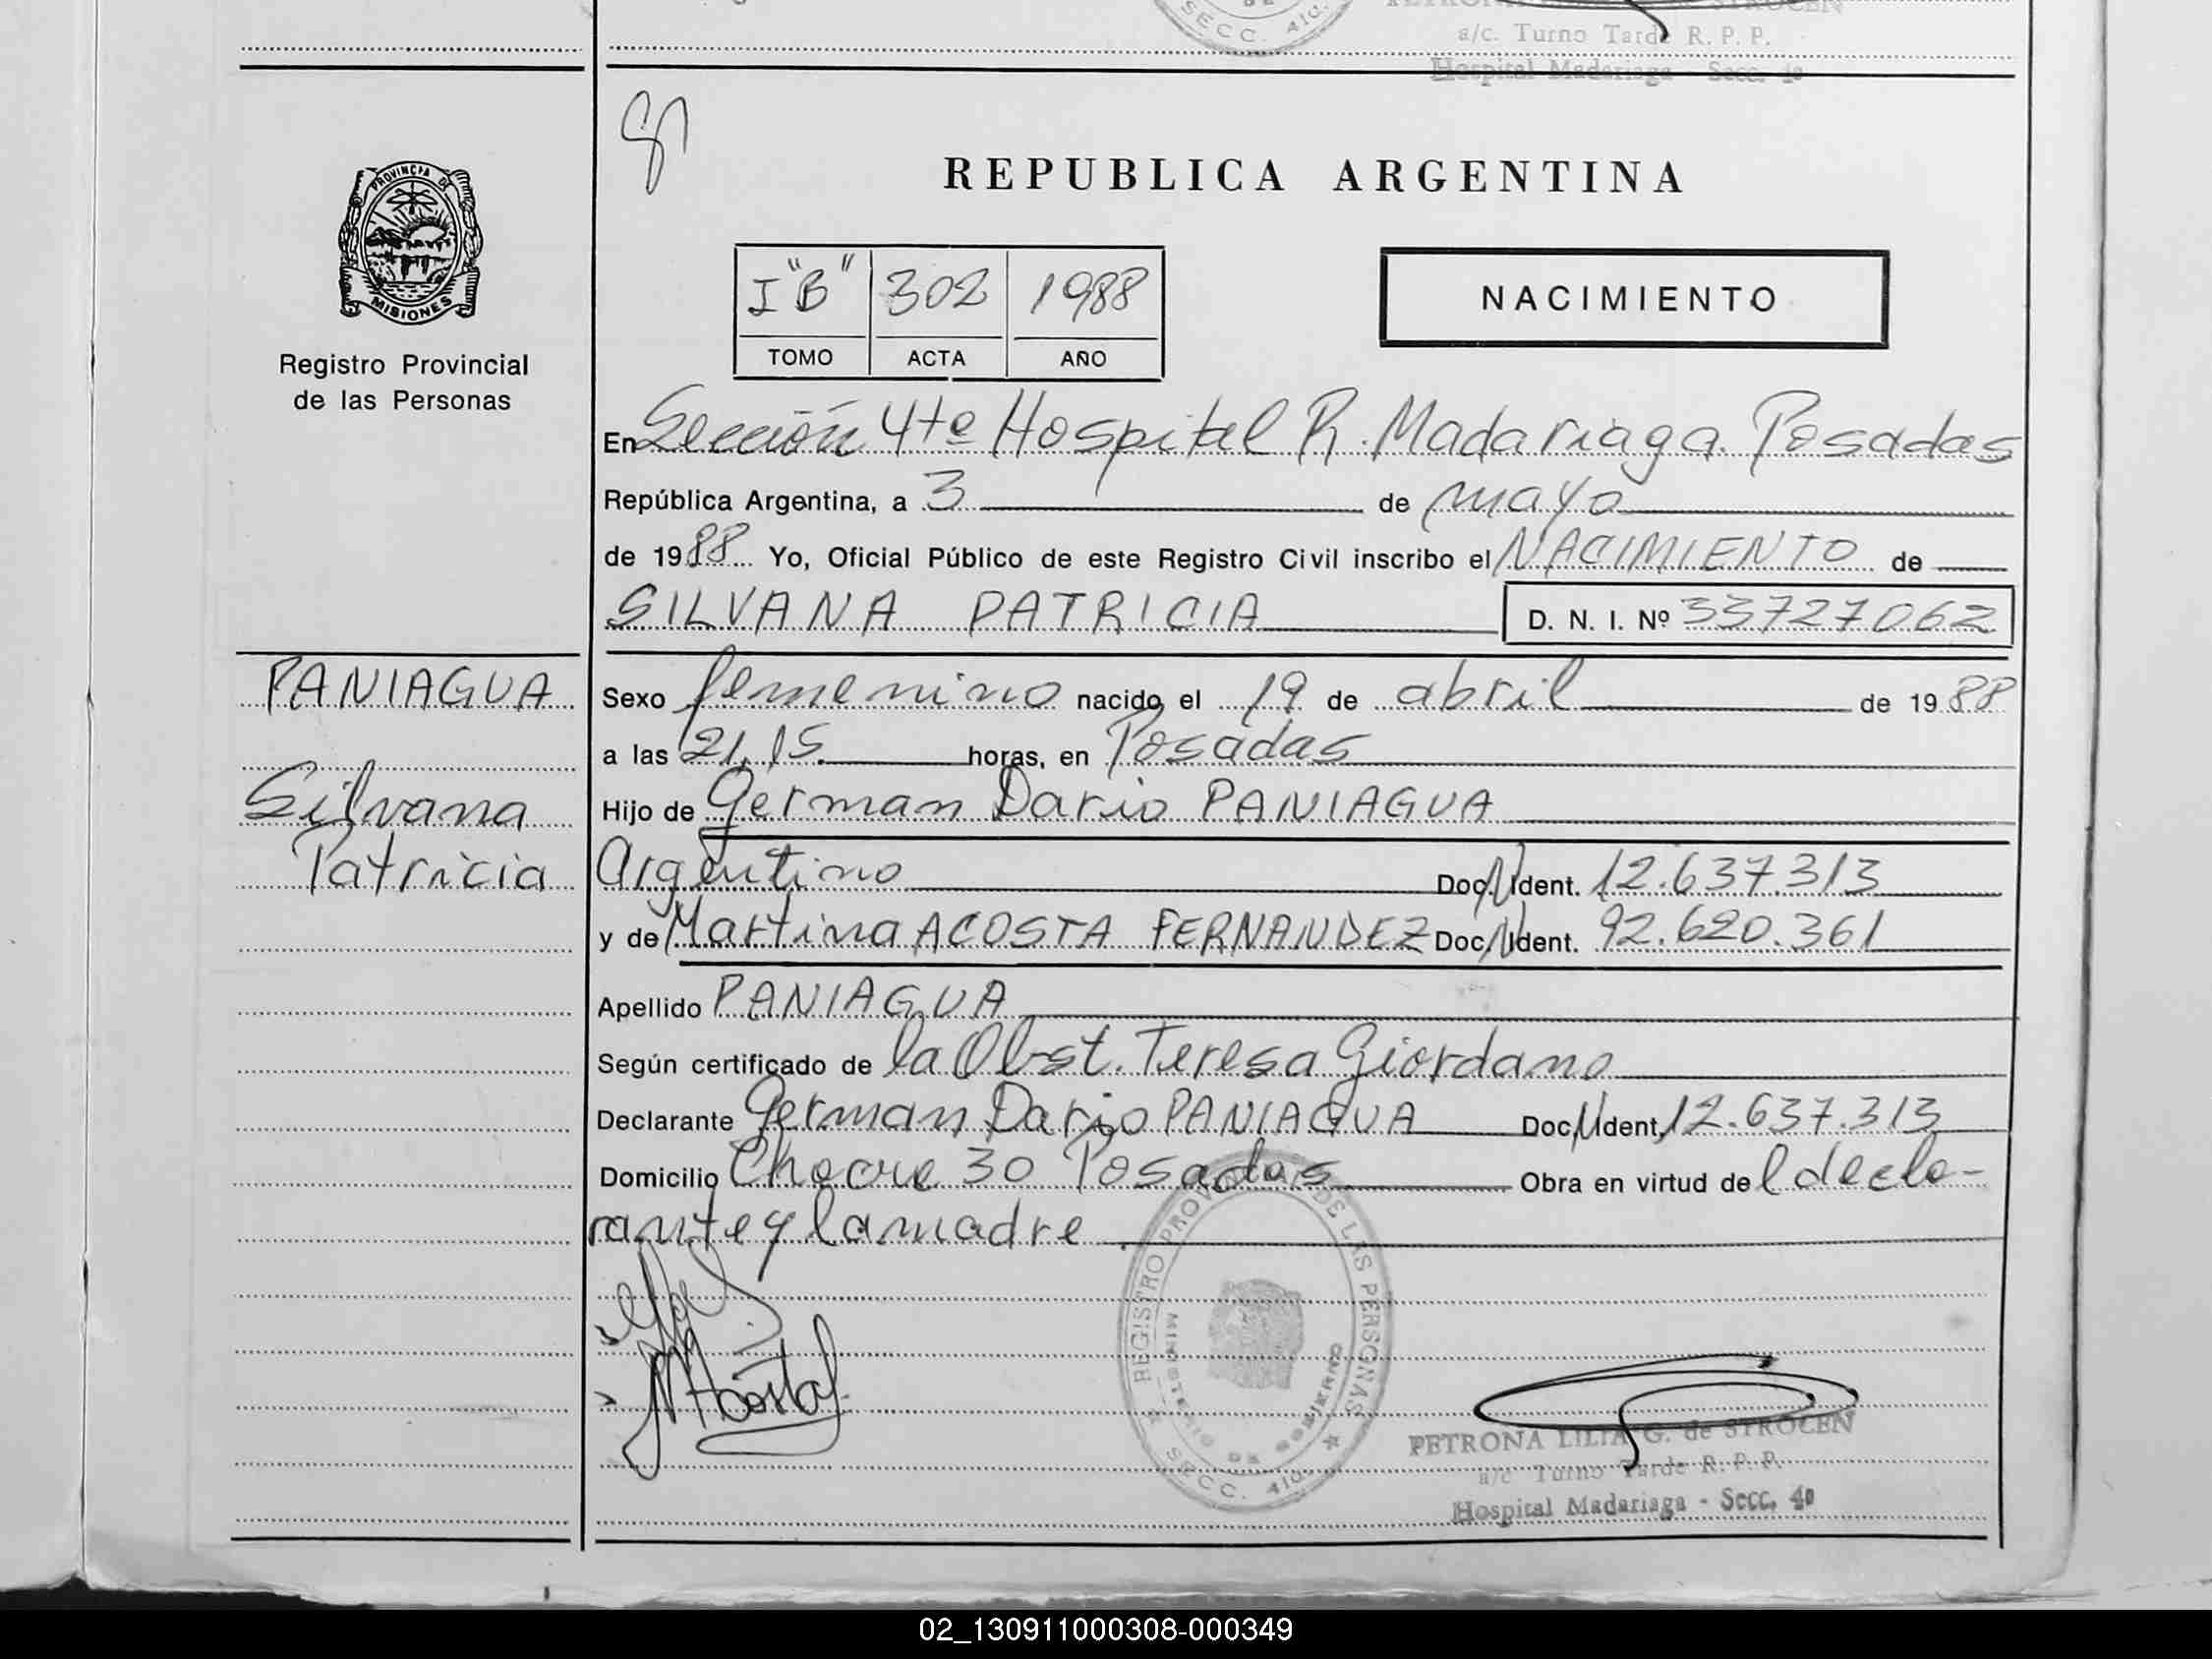 SECC. 4ta.
a/c. Turno Tarde R. P. P.
Hospital Madariaga - Secc. 4a
PROVINCIA DE
MISIONES
Registro Provincial
de las Personas
REPUBLICA ARGENTINA
I "B" 302 1988
TOMO ACTA AÑO
NACIMIENTO
En Sección 4ta Hospital R. Madariaga. Posadas
República Argentina, a 3 de mayo
de 1988 Yo, Oficial Público de este Registro Civil inscribo el NACIMIENTO de
SILVANA PATRICIA D. N. I. Nº 33727062
PANIAGUA
Silvana
Patricia
Sexo femenino nacido el 19 de abril de 1988
a las 21.15 horas, en Posadas
Hijo de German Dario PANIAGUA
Argentino Doc. N Ident. 12.637.313
y de Martina ACOSTA FERNANDEZ Doc. N Ident. 92.620.361
Apellido PANIAGUA
Según certificado de la Obst. Teresa Giordano
Declarante German Dario PANIAGUA Doc. N Ident. 12.637.313
Domicilio 30 Posadas Obra en virtud del decla-
rante y la madre.
MAcosta
REGISTRO PROV. DE LAS PERSONAS
MINISTERIO DE GOBIERNO
SECC. 4ta.
PETRONA LILIA G. de STROCEN
a/c Turno Tarde R. P. P.
Hospital Madariaga - Secc. 4a
02_130911000308-000349